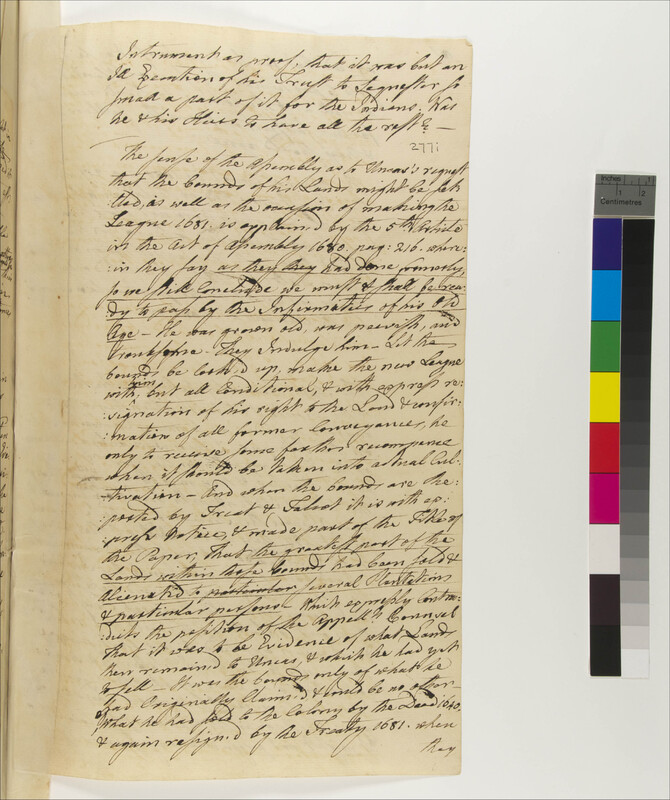 Intrument as proof, that it was but an
Ill Execution of his Trust to Sequestor so
small a part of it for the Indians. Was
he & his Heirs to have all the rest? —
277i
The sense of the Assembly as to Uncas's request
that the bounds of his Lands might be set-
tled, as well as the occasion of making the
League 1681. is explain'd by the 5th Article
in the Act of Assembly 1680. pag: 216. where:
:in they say as then they had done formerly,
so we still conclude we must & shall be rea:
dy to pass by the Infirmities of his Old
Age — He was grown old, was peevish, and
troublesome. They Indulge him — Let the
bounds be look'd up, make the new League
with him, but all Conditional, & with express re:
:signation of his right to the Land & confir:
:mation of all former Conveyances, he
only to receive some farther recompence
when it should be taken into actual Cul-
-tivation — And when the bounds are Re:
:ported by Treat & Talcot it is with ex:
:press Notice, & made part of the Title of
the Paper, That the greatest part of the
Lands within these bounds had been sold &
Alienated to particular several Plantations
& particular persons Which expressly Contra:
:dicts the position of the Appellts Counsel
That it was to be Evidence of what Lands
then remained to Uncas, & which he had yet
to sell — It was the bounds only of what he
had Originally Claim'd & could be no other —
what he had sold to the Colony by the Deed 1640.
& again resign'd by the Treaty 1681. when
they
Inches
1
2
Centimetres